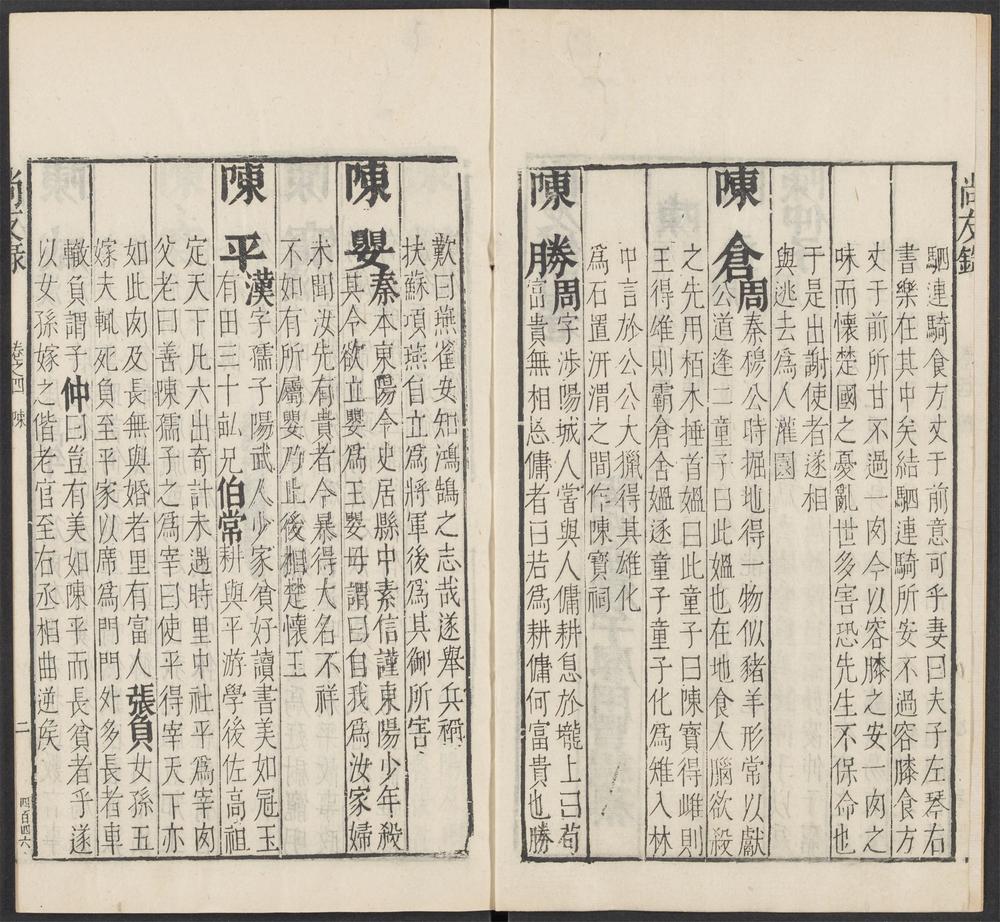 尚友錄
駟連騎食方丈于前意可乎妻曰夫子左琴右
書樂在其中矣結駟連騎所安不過容膝食方
丈于前所甘不過一肉今以容膝之安一肉之
味而懷楚國之憂亂世多害恐先生不保命也
于是出謝使者遂相
與逃去為人灌園
陳倉周秦穆公時掘地得一物似豬羊形常以獻
公道逢二童子曰此媼也在地食人腦欲殺
之先用栢木捶首媼曰此童子曰陳寶得雌則
王得雄則霸倉舍媼逐童子童子化為雉入林
中言於公公大獵得其雄化
為石置汧渭之間作陳寶祠
陳勝周字涉陽城人當與人傭耕息於壠上曰苟
富貴無相忘傭者曰若為耕傭何富貴也勝
歎曰燕雀安知鴻鵠之志哉遂舉兵稱
扶蘇項燕自立為將軍後為其御所害
陳嬰秦本東陽令史居縣中素信謹東陽少年殺
其令欲立嬰為王嬰毋謂曰自我為汝家婦
未聞汝先有貴者今暴得大名不祥
不如有所屬嬰乃止後相楚懷王
陳平漢字孺子陽武人少家貧好讀書美如冠玉
有田三十畝兄伯常耕與平游學後佐高祖
定天下凡六出奇計未遇時里中社平為宰肉
父老曰善陳孺子之為宰曰使平得宰天下亦
如此肉及長無與婚者里有富人張負女孫五
嫁夫輒死負至平家以席為門門外多長者車
轍負謂子仲曰豈有美如陳平而長貧者乎遂
以女孫嫁之偕老官至右丞相曲逆侯
尚友錄 卷之四 陳 二 四百四六